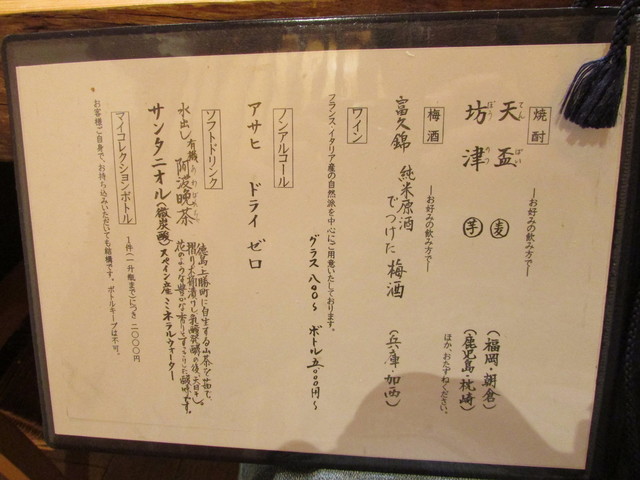 焼酎
―お好みの飲み方で―
天盃 てんぱい 麦 (福岡・朝倉)
坊津 ぼうのつ 芋 (鹿児島・枕崎)
ほか、おたずねください。
梅酒
―お好みの飲み方で―
富久錦 純米原酒でつけた梅酒 (兵庫・加西)
ワイン
フランス・イタリア産の自然派を中心にご用意いたしております。
グラス 八〇〇〜 ボトル 五〇〇〇円〜
ノンアルコール
アサヒ ドライゼロ
ソフトドリンク
水出し有機 阿波晩茶 あわばんちゃ
徳島上勝町に自生する山茶を茹で、
摺り、木桶漬けし乳酸発酵の後、天日干し。
花のような豊かな香りとすっきりした酸味です。
サンタニオル(微炭酸) スペイン産ミネラルウォーター
マイコレクションボトル 1件(一升瓶まで)につき 二〇〇〇円
お客様ご自身で、お持ち込みいただいても結構です。ボトルキープは不可。